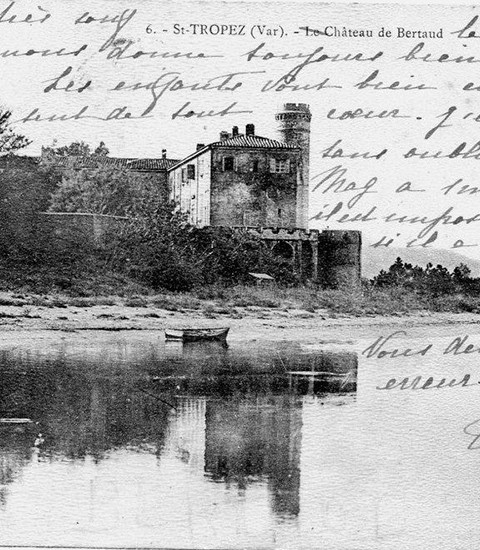 6. - St-TROPEZ (Var). - Le Château de Bertaud
très soif
nous donne toujours bien
Les enfants vont bien
sont de tout cœur. J'
sans oubli
Mag a
il est impos
s'il a
Vous de
erreur.